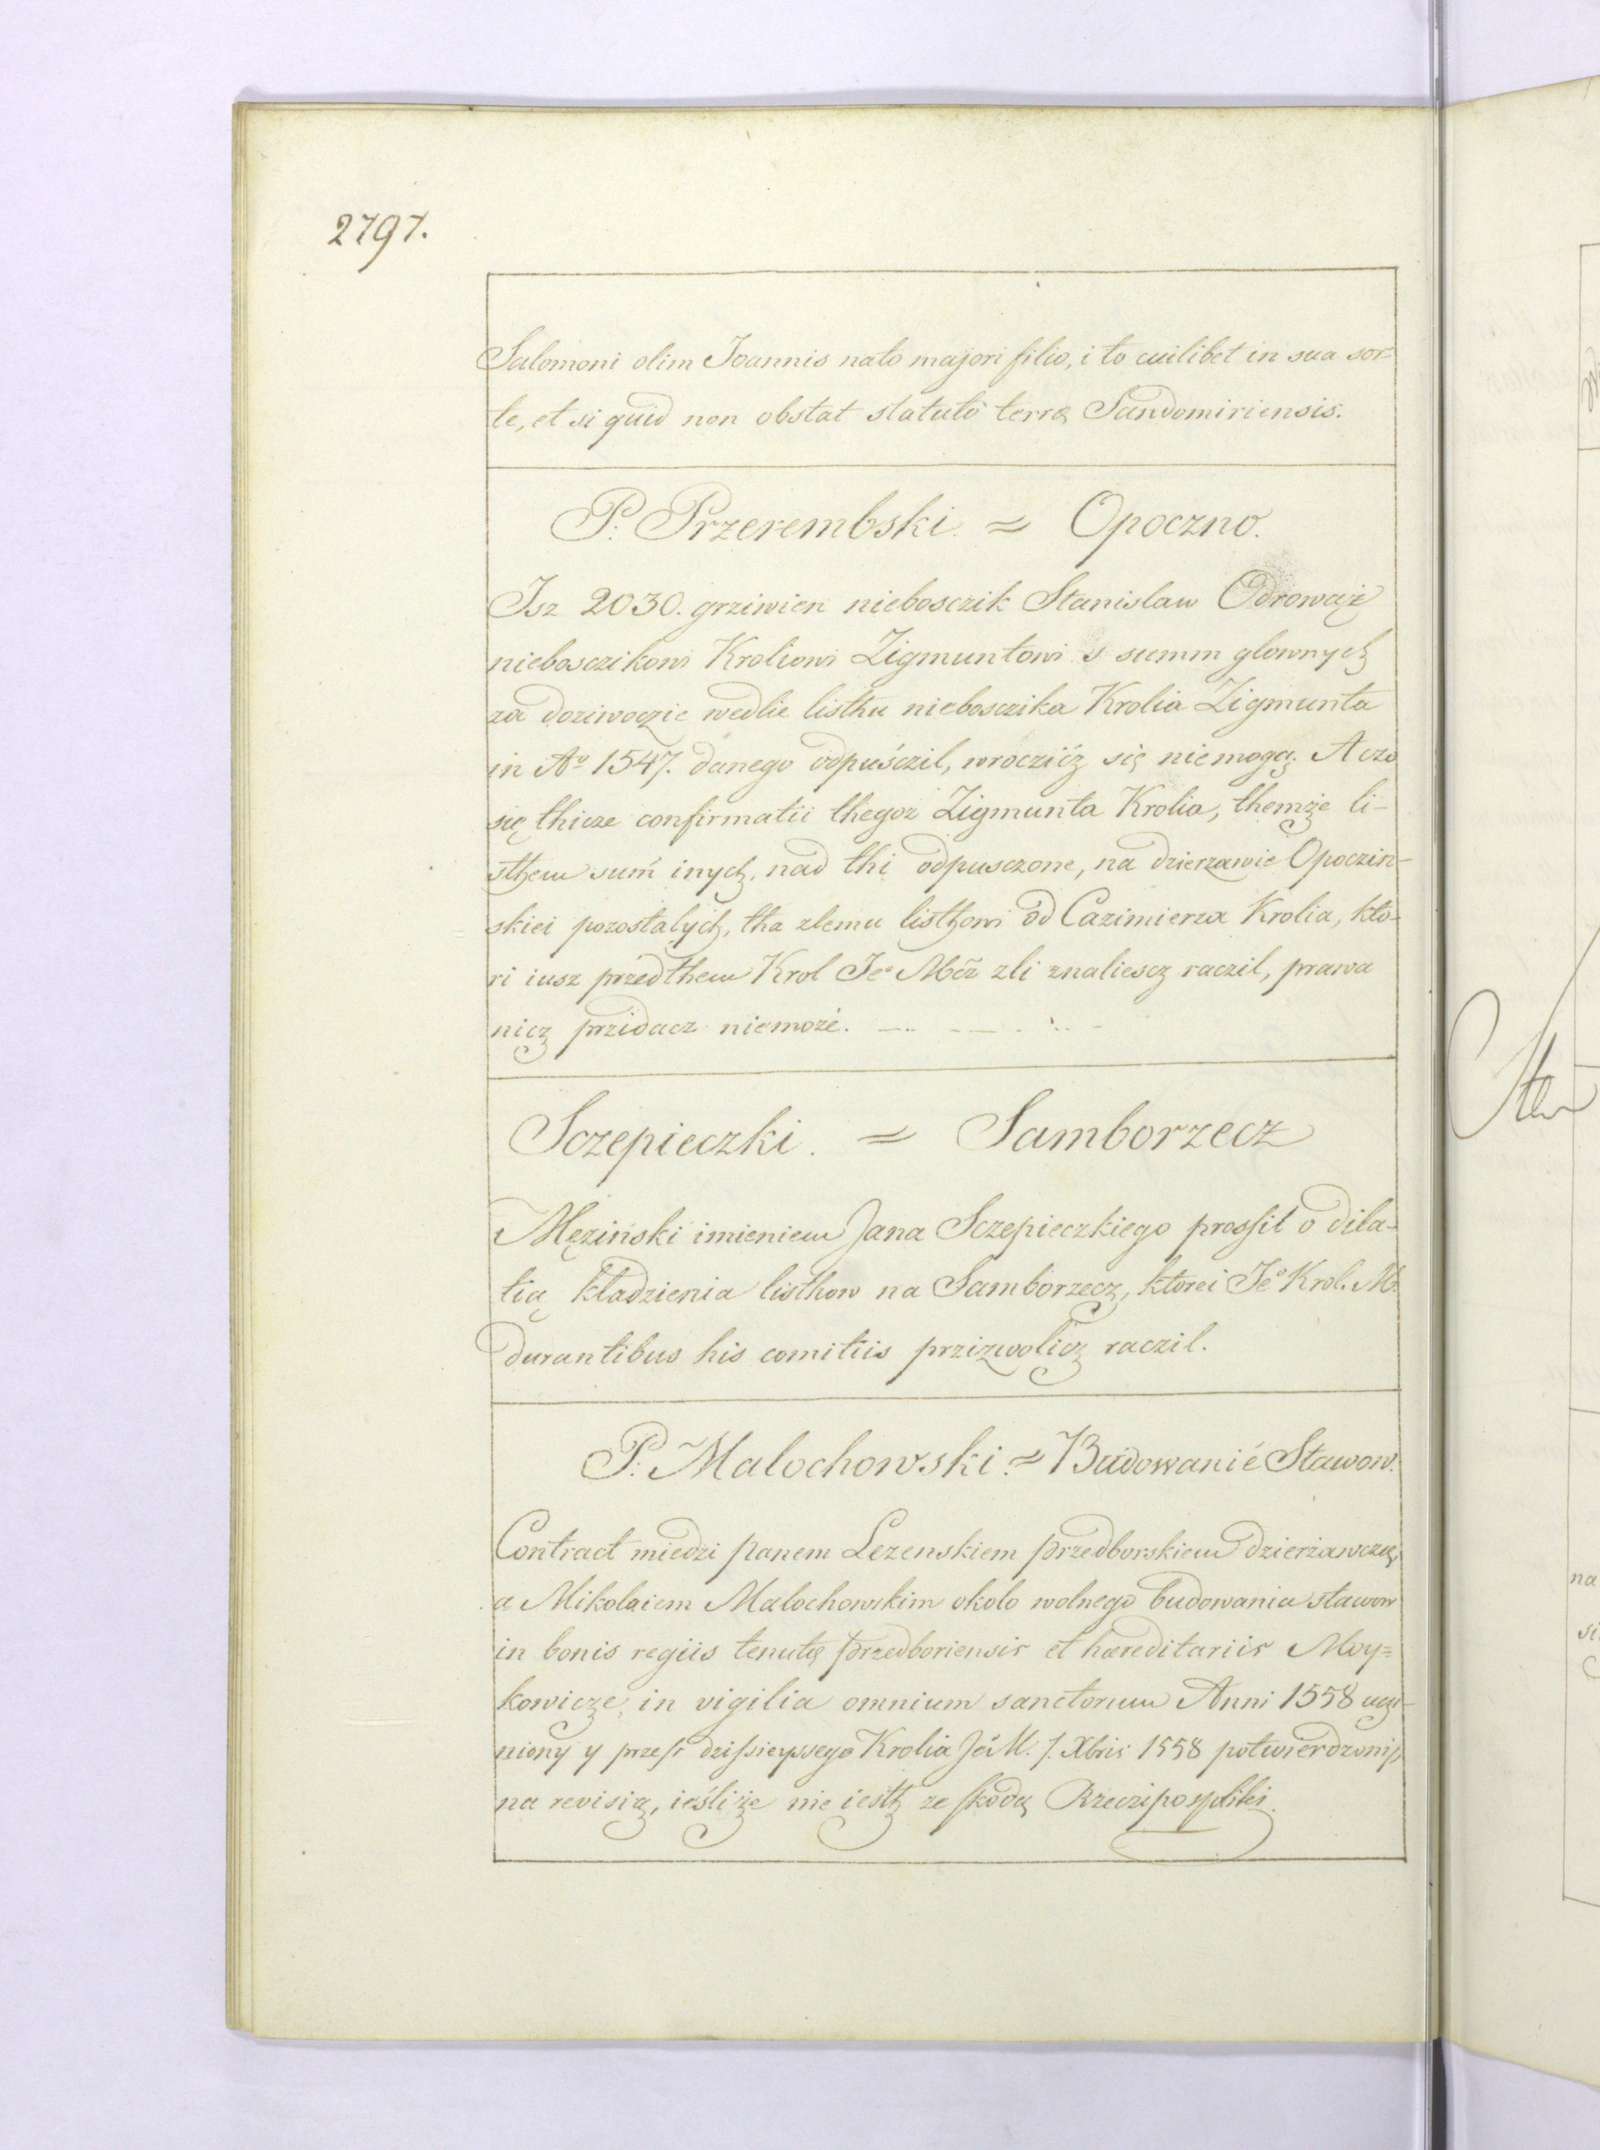 2797.
Salomoni olim Joannis nato majori filio, i to cuilibet in sua sor-
te, et si quid non obstat statuto terrę Sandomiriensis.
P. Przerembski = Opoczno.
Isz 2030. grziwien niebosczik Stanislaw Odrowąż
niebosczikowi Kroliowi Zigmuntowi s summ glownych
za doziwoczie wedlie listhu niebosczika Krolia Zigmunta
in Aº 1547. danego odpuśczil, wroczićz się niemogą. A czo
się thicze confirmatii thegoz Zigmunta Krolia, themże li-
sthem sum̃ inych, nad thi odpusczone, na dzierzawie Opoczin-
skiei pozostalych, tha zlemu listhowi od Cazimierza Krolia, kto-
ri iusz przed them Krol Jeº Mcz zli znaliescz raczil, prawa
nicz przidacz niemoże.
Sczepieczki. = Samborzecz
Męzinski imieniem Jana Sczepieczkiego prossil o dila-
tią kladzienia listhow na Samborzecz, ktorei Jeº Krol. M.
durantibus his comitiis przizwolicz raczil.
P. Malochowski. = Budowanié Stawow.
Contract miedzi panem Lezenskiem przedborskiem dzierżawczą,
a Mikolaiem Malochowskim okolo wolnego budowania stawow
in bonis regiis tenutę przedboriensis et hæreditariis Moy=
kowicze, in vigilia omnium sanctorum Anni 1558 uczi-
niony y przess dzissieyssego Krolia Jéº M. 7. Xbris 1558 potwierdzoni,
na revisią, ieśliże nie iesth ze skodą Rzeczipospoliki.